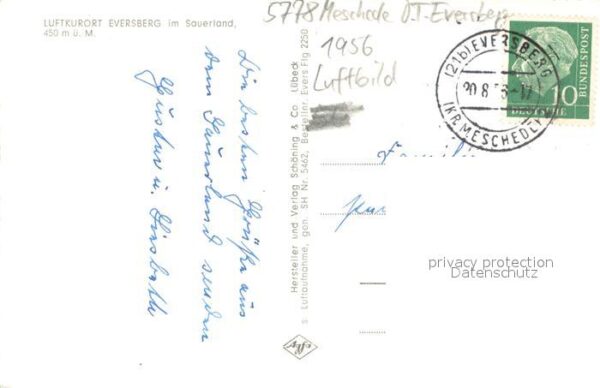 LUFTKURORT EVERSBERG im Sauerland,
450 m ü. M.
5778 Meschede O.T. Eversberg
1956
Luftbild
Die besten Grüße aus
dem Sauerland senden
Gustav u. Lisbeth
Hersteller und Verlag Schöning & Co. Lübeck
s. Luftaufnahme, gen. SH Nr. 5462, Bestellnr. Evers Flg 2250
(21b) EVERSBERG
20.8.56-17
(KR. MESCHEDE)
10
DEUTSCHE
BUNDESPOST
Familie
privacy protection
Datenschutz